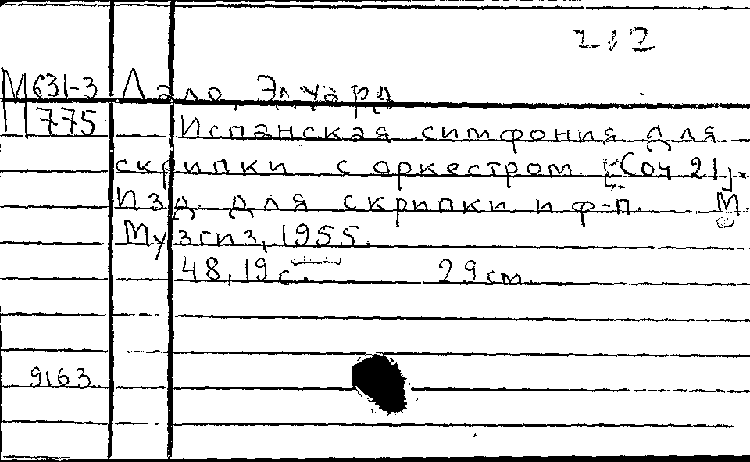 212
М631-3 Лало, Эдуард
П775 Испанская симфония для
скрипки с оркестром [Соч 21].
Изд. для скрипки и ф-п. М
Музгиз, 1955.
48, 19 с. 29 см
9163